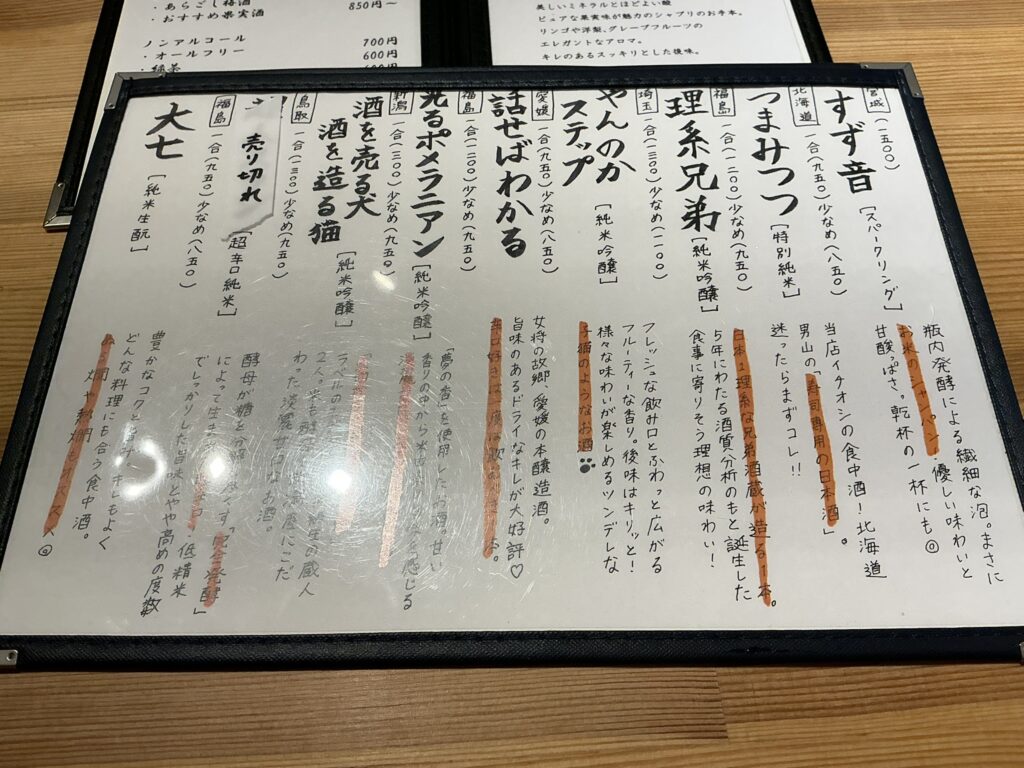 ・あらごし梅酒 850円～
・おすすめ果実酒
ノンアルコール 700円
・オールフリー 600円
・緑茶
美しいミネラルとほどよい酸
ピュアな果実味が魅力のシャブリのお手本。
リンゴや洋梨、グレープフルーツの
エレガントなアロマ。
キレのあるスッキリとした後味。
宮城
(一五〇〇)
すず音
[スパークリング]
瓶内発酵による繊細な泡。まさに
お米のシャンパン!優しい味わいと
甘酸っぱさ。乾杯の一杯にも◎
北海道
一合(九五〇)少なめ(八五〇)
つまみつつ
[特別純米]
当店イチオシの食中酒!北海道
男山の「寿司専用の日本酒」。
迷ったらまずコレ!!
福島
一合(一二〇〇)少なめ(九五〇)
理系兄弟
[純米吟醸]
日本一理系な兄弟酒蔵が造る1本。
5年にわたる酒質分析のもと誕生した
食事に寄りそう理想の味わい!
埼玉
一合(一三〇〇)少なめ(一一〇〇)
やんのか
ステップ
[純米吟醸]
フレッシュな飲み口とふわっと広がる
フルーティーな香り。後味はキリッと!
様々な味わいが楽しめるツンデレな
子猫のようなお酒
愛媛
一合(九五〇)少なめ(八五〇)
話せばわかる
女将の故郷 愛媛の本醸造酒。
旨味のあるドライなキレが大好評♡
辛口好きは一度は
福島
一合(一二〇〇)少なめ(九五〇)
光るポメラニアン
[純米吟醸]
「夢の香」を使用したお酒。甘い
香りの中から米
感じる
新潟
一合(一三〇〇)少なめ(九五〇)
酒を売る犬
酒を造る猫
[純米吟醸]
ラベルの
2人。米も
の蔵人
わった淡麗
なお酒。
鳥取
一合(一三〇〇)少なめ(九五〇)
売り切れ
[超辛口純米]
酵母が糖を分
くす「完全発酵」
によって生ま
・低精米
でしっかりした旨味とやや高めの度数
福島
一合(九五〇)少なめ(八五〇)
大七
[純米生酛]
豊かなコクと旨み
キレもよく
どんな料理にも合う食中酒。
燗や熱燗もオススメ◎